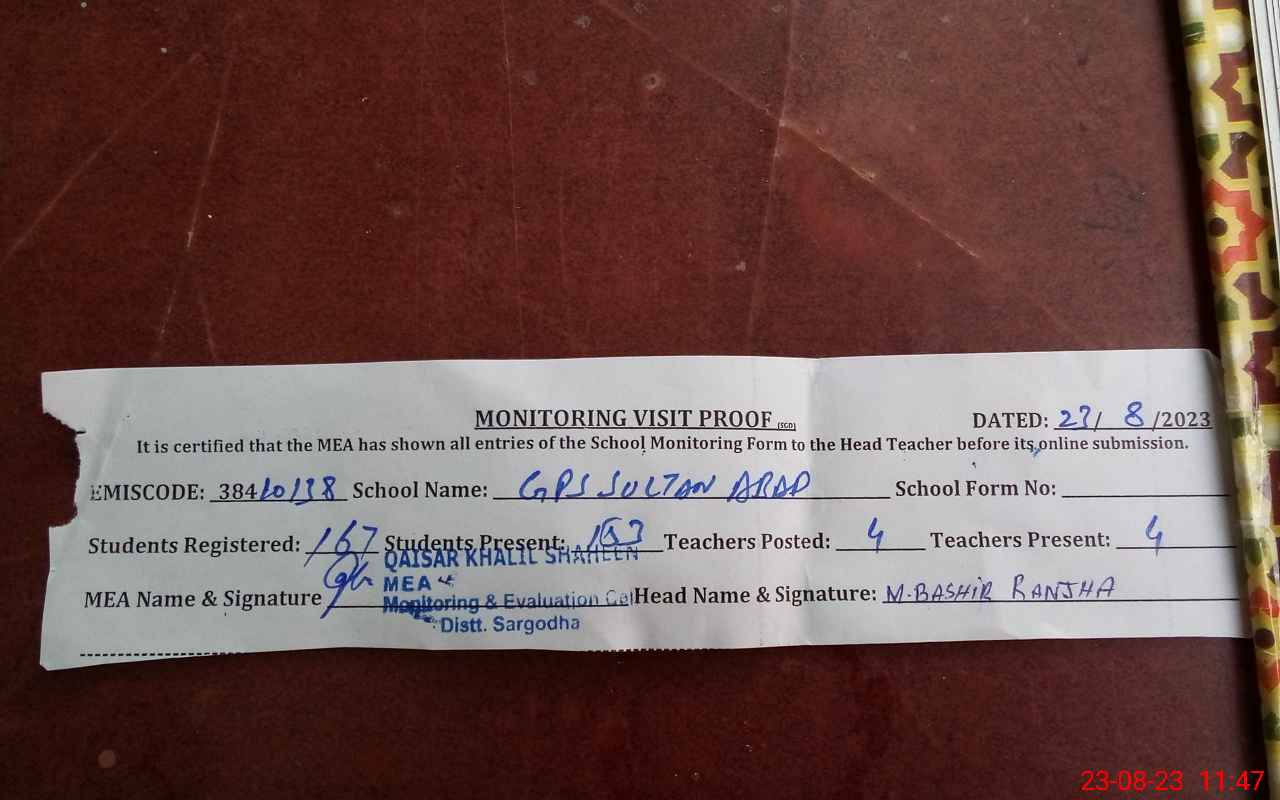 MONITORING VISIT PROOF (SGD) DATED: 23/ 8 /2023
It is certified that the MEA has shown all entries of the School Monitoring Form to the Head Teacher before its online submission.
EMISCODE: 38410138 School Name: GPS SULTAN ABAD School Form No:
Students Registered: 167 Students Present: 153 Teachers Posted: 4 Teachers Present: 4
QAISAR KHALIL SHAHEEN
MEA
MEA Name & Signature Head Name & Signature: M.BASHIR RANJHA
Monitoring & Evaluation Cel
Distt. Sargodha
23-08-23 11:47